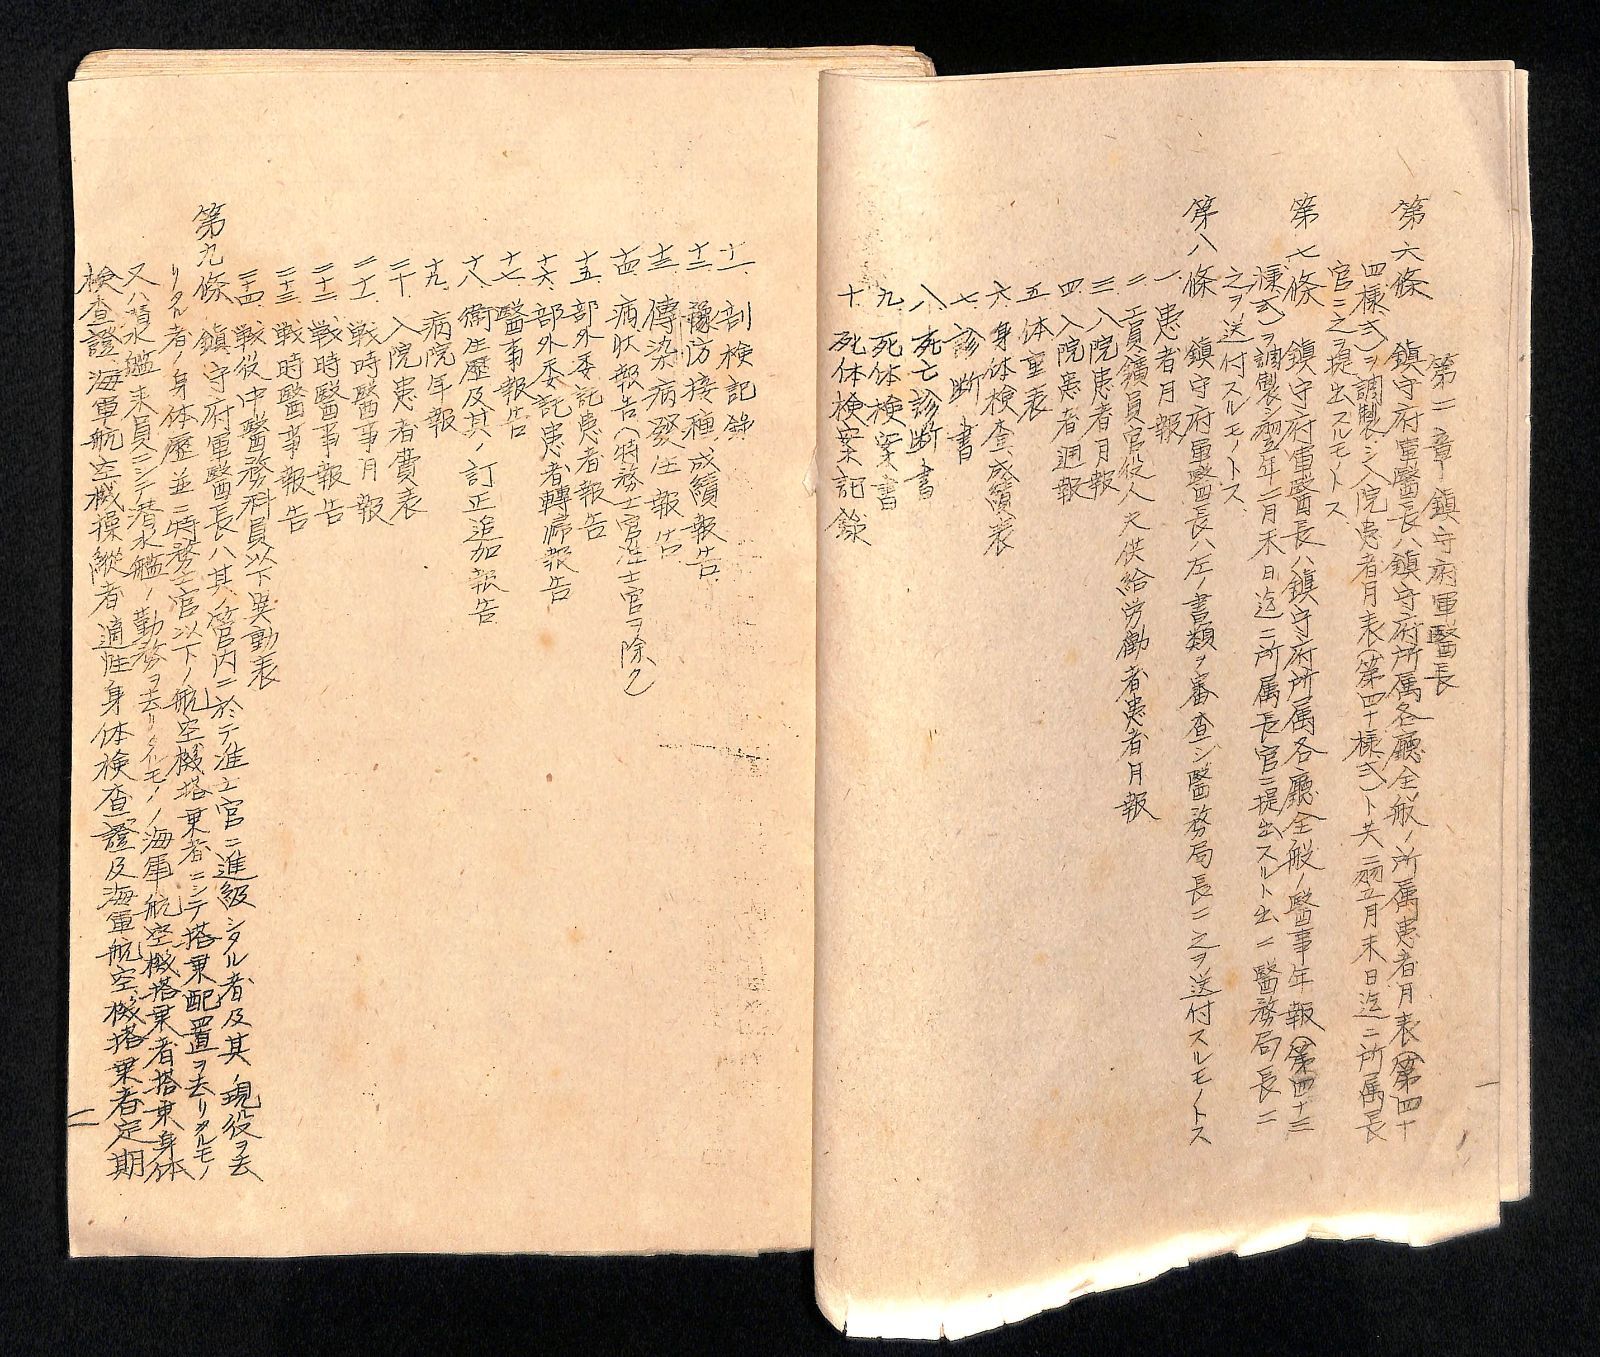 第二章 鎮守府軍醫長
第六條 鎮守府軍醫長ハ鎮守府所属各廳全般ノ所属患者月表(第四十
四樣式)ヲ調製シ入院患者月表(第四十樣式)ト共ニ翌五月末日迄ニ所属長
官ニ之ヲ提出スルモノトス
第七條 鎮守府軍醫長ハ鎮守府所属各廳全般ノ醫事年報(第四十三
樣式)ヲ調製シ翌年二月末日迄ニ所属長官ニ提出スルト共ニ醫務局長ニ
之ヲ送付スルモノトス
第八條 鎮守府軍醫長ハ左ノ書類ヲ審査シ醫務局長ニ之ヲ送付スルモノトス
一、患者月報
二、工員鑛員官役人夫供給労働者患者月報
三、入院患者月報
四、入院患者週報
五、体重表
六、身体検査成績表
七、診断書
八、死亡診断書
九、死体検案書
十、死体検案記錄
十一、剖検記錄
十二、豫防接種成績報告
十三、傳染病發生報告
十四、病状報告(特務士官准士官ヲ除ク)
十五、部外委託患者報告
十六、部外委託患者轉帰報告
十七、醫事報告
十八、衞生歷及其ノ訂正追加報告
十九、病院年報
二十、入院患者費表
二十一、戦時醫事月報
二十二、戦時醫事報告
二十三、戦時醫事報告
二十四、戦役中醫務科員以下異動表
第九條 鎮守府軍醫長ハ其ノ管内ニ於テ准士官ニ進級シタル者及其ノ現役ヲ去
リタル者ノ身体歷並ニ特務士官以下ノ航空機搭乗者ニシテ搭乗配置ヲ去リタルモノ
又ハ潜水艦乗員ニシテ潜水艦ノ勤務ヲ去リタルモノノ海軍航空機搭乗者搭乗身体
検査證、海軍航空機操縦者適性身体検査證及海軍航空機搭乗者定期
二